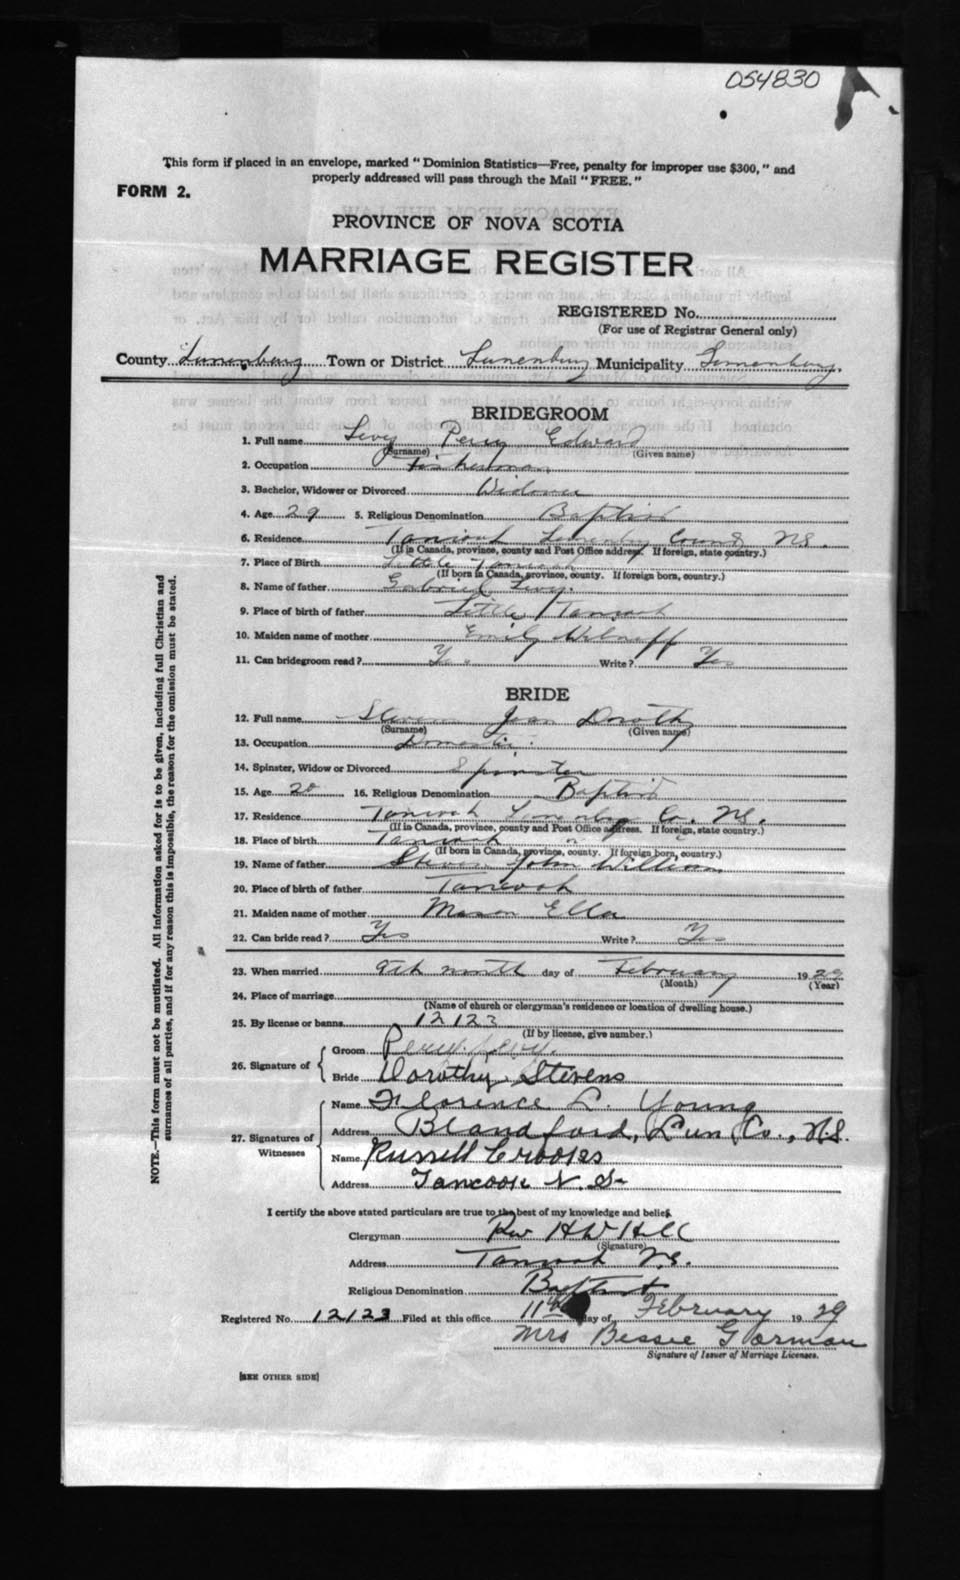 054830
This form if placed in an envelope, marked "Dominion Statistics—Free, penalty for improper use $300," and
properly addressed will pass through the Mail "FREE."
FORM 2.
PROVINCE OF NOVA SCOTIA
MARRIAGE REGISTER
REGISTERED No.
(For use of Registrar General only)
County Lunenburg Town or District Lunenburg Municipality Lunenburg.
BRIDEGROOM
1. Full name Levy Percy Edward
(Surname) (Given name)
2. Occupation Fisherman
3. Bachelor, Widower or Divorced Widower
4. Age 29 5. Religious Denomination Baptist
6. Residence Tancook Lunenburg County N.S.
(If in Canada, province, county and Post Office address. If foreign, state country.)
7. Place of Birth Little Tancook
(If born in Canada, province, county. If foreign born, country.)
8. Name of father Gabriel Levy.
9. Place of birth of father Little Tancook
10. Maiden name of mother Emily Wilneff
11. Can bridegroom read? Yes Write? Yes
BRIDE
12. Full name Stevens Jean Dorothy
(Surname) (Given name)
13. Occupation Domestic
14. Spinster, Widow or Divorced Spinster
15. Age 20 16. Religious Denomination Baptist
17. Residence Tancook Lunenburg Co. N.S.
(If in Canada, province, county and Post Office address. If foreign, state country.)
18. Place of birth Tancook
(If born in Canada, province, county. If foreign born, country.)
19. Name of father Stevens John William
20. Place of birth of father Tancook
21. Maiden name of mother Mason Ella
22. Can bride read? Yes Write? Yes
23. When married 9th month day of February 1929
(Month) (Year)
24. Place of marriage
(Name of church or clergyman's residence or location of dwelling house.)
25. By license or banns 12123
(If by license, give number.)
26. Signature of
Groom Percy Levy.
Bride Dorothy Stevens
27. Signatures of Witnesses
Name Florence L. Young
Address Blandford, Lun Co., N.S.
Name Russell Crookes
Address Tancook N.S.
I certify the above stated particulars are true to the best of my knowledge and belief.
Clergyman Rev H W Hill
(Signature)
Address Tancook N.S.
Religious Denomination Baptist
Registered No. 12123 Filed at this office 11th day of February 1929
Mrs Bessie Gorman
Signature of Issuer of Marriage Licenses.
[SEE OTHER SIDE]
NOTE.—This form must not be mutilated. All information asked for is to be given, including full Christian and
surnames of all parties, and if for any reason this is impossible, the reason for the omission must be stated.